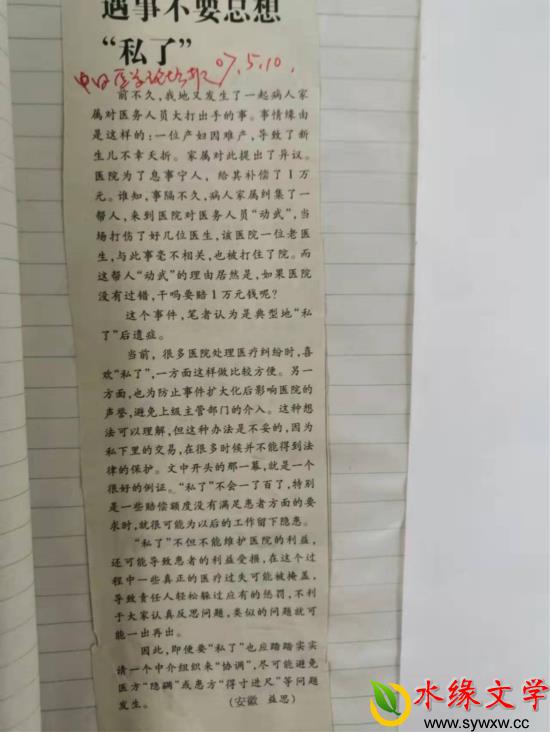 遇事不要总想
“私了”
中国医学论坛报 07.5.10.
前不久，我地又发生了一起病人家
属对医务人员大打出手的事。事情缘由
是这样的：一位产妇因难产，导致了新
生儿不幸夭折。家属对此提出了异议。
医院为了息事宁人，给其补偿了1万
元。谁知，事隔不久，病人家属纠集了一
帮人，来到医院对医务人员“动武”，当
场打伤了好几位医生，该医院一位老医
生，与此事毫不相关，也被打住了院。而
这帮人“动武”的理由居然是，如果医院
没有过错，干吗要赔1万元钱呢？
这个事件，笔者认为是典型地“私
了”后遗症。
当前，很多医院处理医疗纠纷时，喜
欢“私了”，一方面这样做比较方便。另一
方面，也为防止事件扩大化后影响医院的
声誉，避免上级主管部门的介入。这种想
法可以理解，但这种办法是不妥的，因为
私下里的交易，在很多时候并不能得到法
律的保护。文中开头的那一幕，就是一个
很好的例证。“私了”不会一了百了，特别
是一些赔偿额度没有满足患者方面的要
求时，就很可能为以后的工作留下隐患。
“私了”不但不能维护医院的利益，
还可能导致患者的利益受损，在这个过
程中一些真正的医疗过失可能被掩盖，
导致责任人轻松躲过应有的惩罚，不利
于大家认真反思问题，类似的问题就可
能一出再出。
因此，即便要“私了”也应踏踏实实
请一个中介组织来“协调”，尽可能避免
医方“隐瞒”或患方“得寸进尺”等问题
发生。（安徽 益思）
水缘文学
www.sywxw.cc